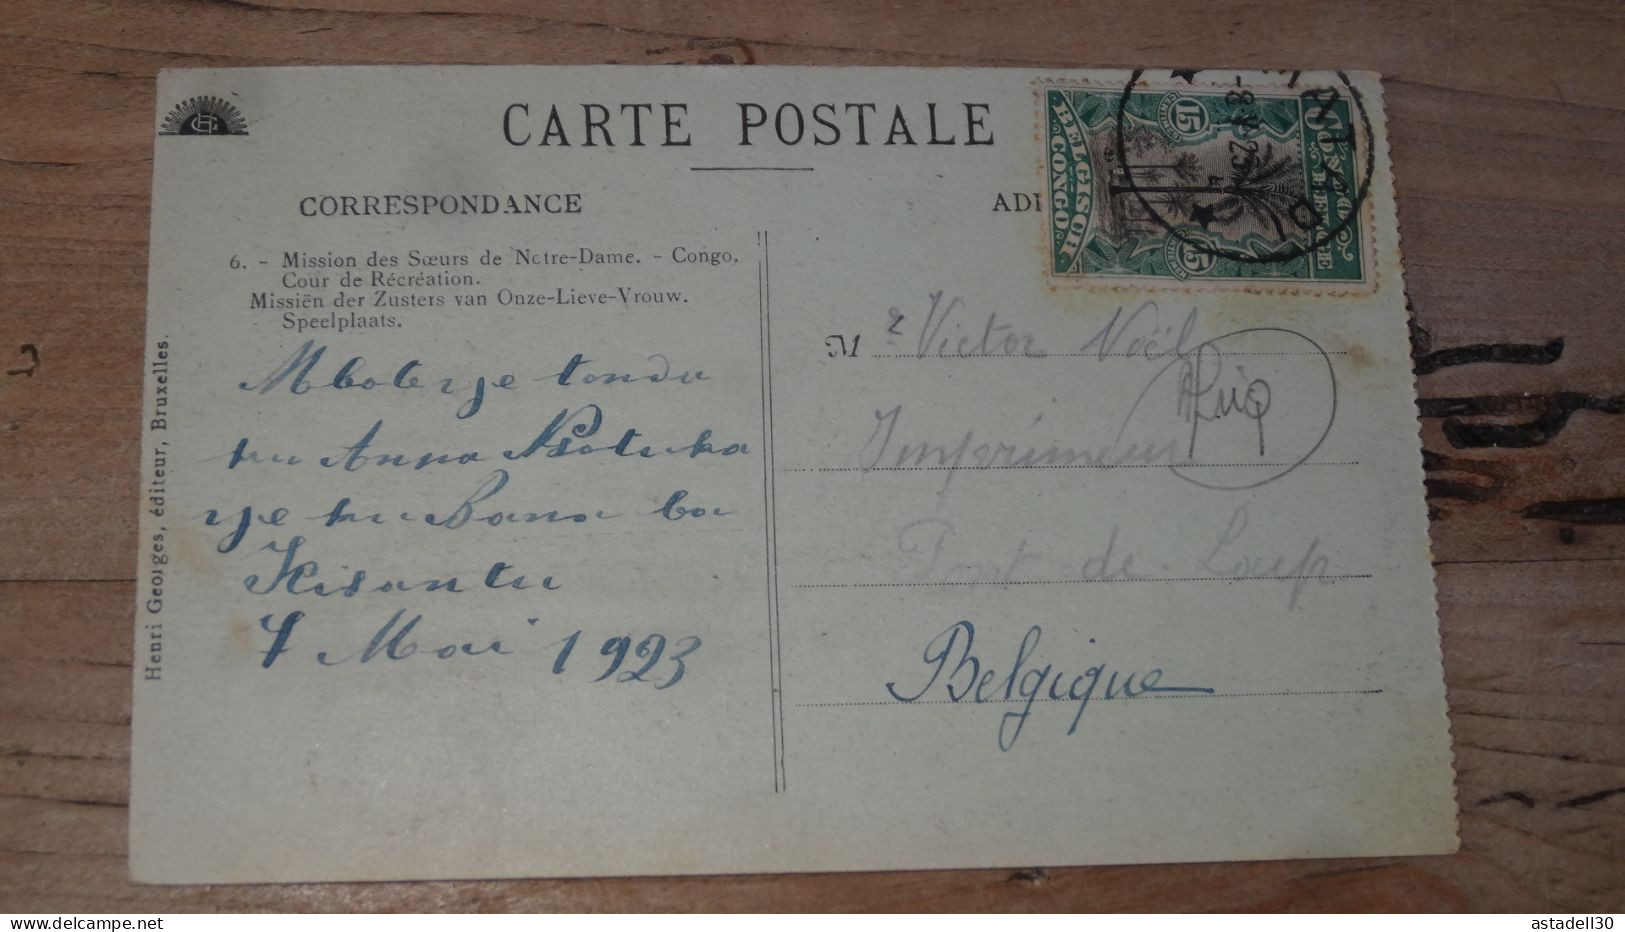 CARTE POSTALE
CORRESPONDANCE
6. - Mission des Sœurs de Notre-Dame. - Congo.
Cour de Récréation.
Missiën der Zusters van Onze-Lieve-Vrouw.
Speelplaats.
Mbote ye tondu
ku Anna
ye ku Bana ba
Kisantu
7 Mai 1923
Henri Georges, éditeur, Bruxelles.
15
BELGISCH CONGO
CONGO BELGE
15
MATADI
M r Victor Noël
Imprimeur
Pont de Loup
Belgique
www.delcampe.net
astadell30